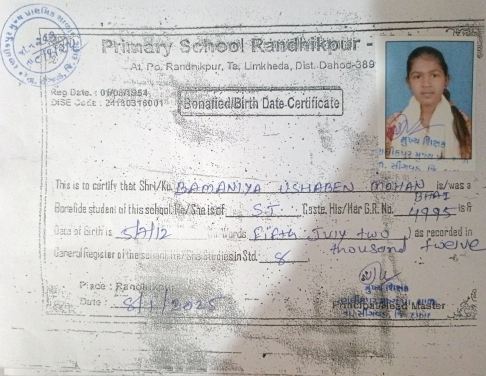 Primary School Randhikpur -
At. Po. Randhikpur, Ta. Limkheda, Dist. Dahod-389
Reg Date : 01/08/1954
DISE Code : 24180316001
Bonafied/Birth Date Certificate
This is to certify that Shri/Ku. BAMANIYA USHABEN MOHAN is/was a
BHAI
Bonafide student of this school He/She is of ST Caste. His/Her G.R. No. 4995 is &
Date of Birth is 5/7/12 Words Fifth July two ) as recorded in
thousand twelve
General Register of the school He/She Studies in Std. 8
Place : Randhikpur
મુખ્ય શિક્ષક
Date : 8/1/2025
Principal/Head Master